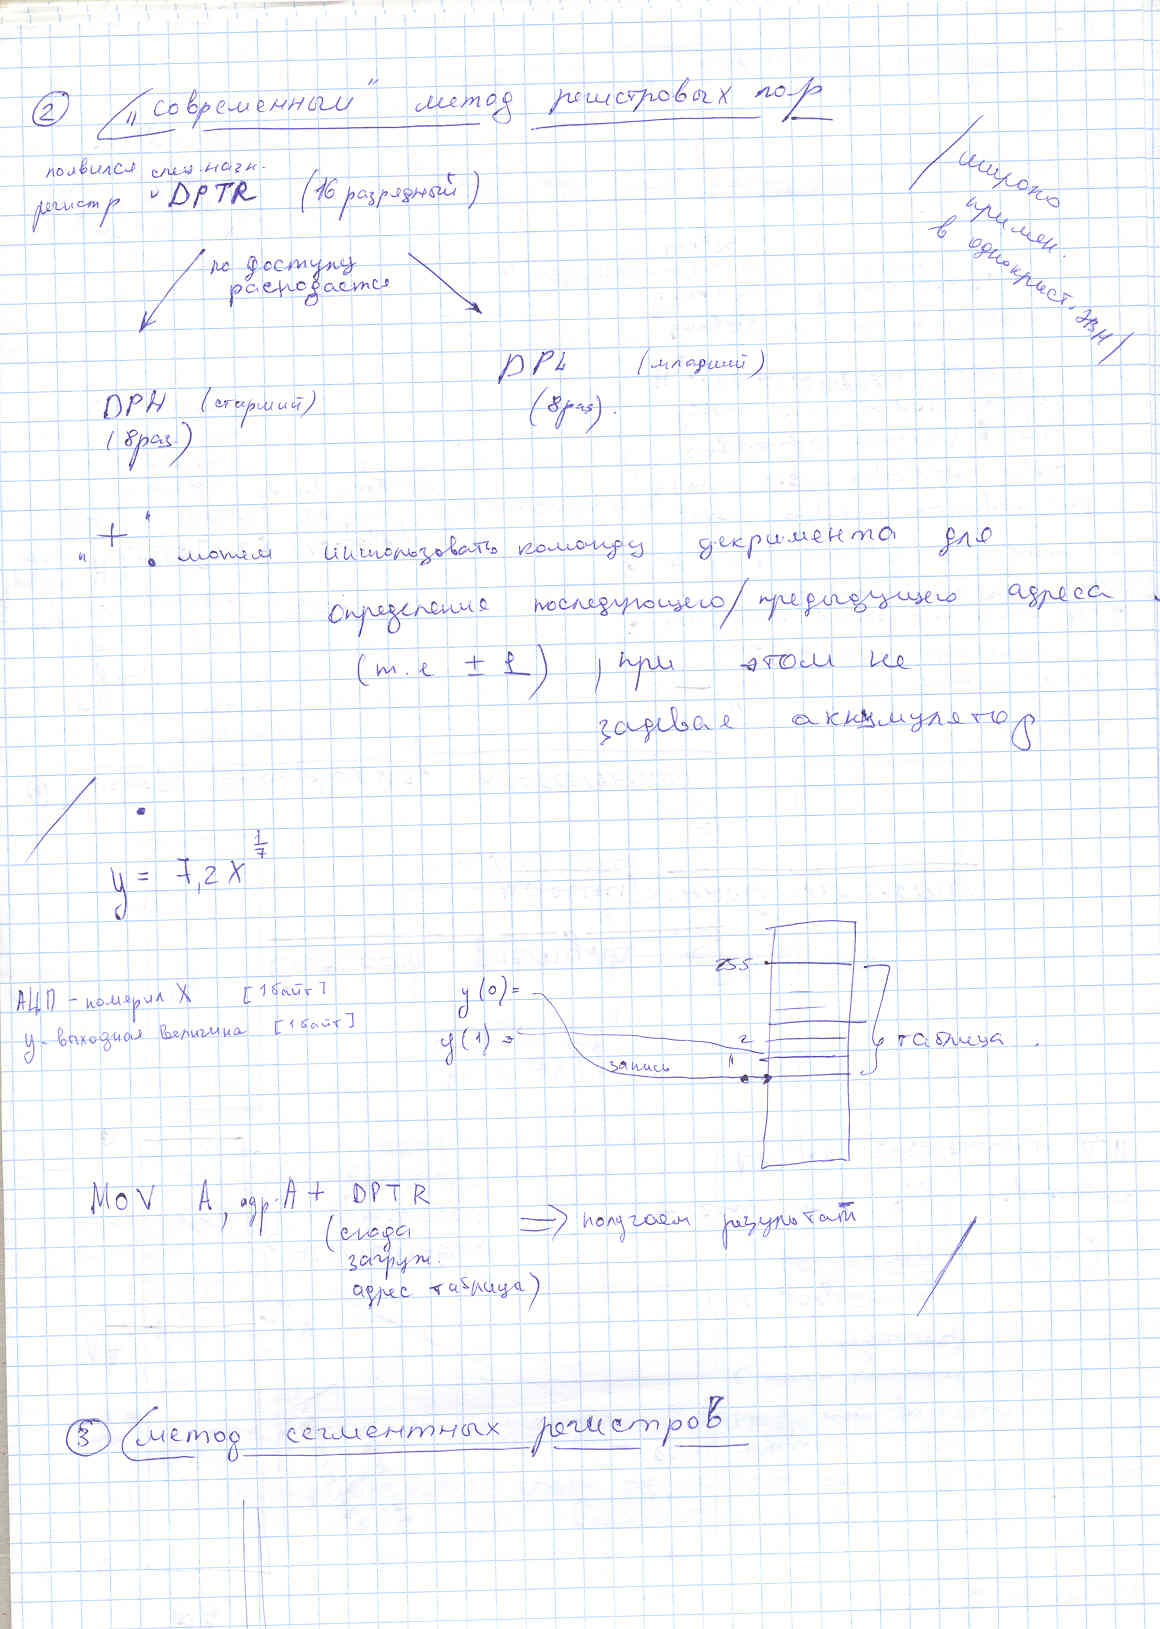 2 "современный" метод регистровых пар
появился спец. назн.
регистр DPTR (16 разрядный)
/широко
примен.
в однокрист. ЭВМ/
по доступу
распадается
DPL (младший)
(8 раз).
DPH (старший)
(8 раз)
"+" • можем использовать команду декримента для
определения последующего/предыдущего адреса
(т.е ± 1), при этом не
задевая аккумулятор
/ •
y = 7,2 x^{1/7}
255
АЦП – померил X [1 байт]
y(0) =
y - выходная величина [1 байт]
y(1) =
2
1
таблица.
запись
MOV A, адр. A + DPTR
(сюда
загруж.
адрес таблица)
=> получаем результат /
3 метод сегментных регистров